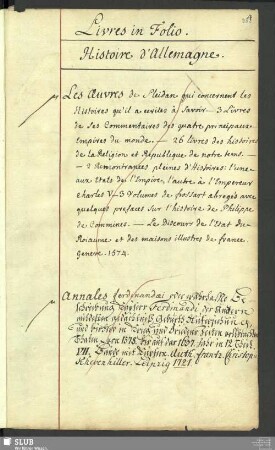 Livres in Folio.
Histoire d'Allemagne.
Les Œuvres de Sleidan qui concernent les
Histoires qu'il a ecrites à savoir — 3 Livres
de ses Commentaires des quatre principaux
Empires du monde. — 26 livres des histoires
de la Religion et Republique de notre tems.
— 2 Remontrances pleines d'Histoires l'une
aux Etats de l'Empire, l'autre à l'Empereur
Charles V. 3 Volumes de froissart abregés avec
quelques prefaces sur l'histoire de Philippe
de Commines. — Le Discours de l'Estat du
Royaume et des maisons illustres de france.
Geneve. 1574.
Annales Ferdinandei oder wahrhaffte Be
schreibung Kaysers Ferdinandi des Andern
mildesten Gedächtniß Geburth
und in Krieg und
Thaten von 1578 bis auf das 1637. Jahr in 12 Theil
VII. Bände mit Kupfern. Auth. Frantz Christoph
Khevenhiller. Leipzig 1721.
SLUB